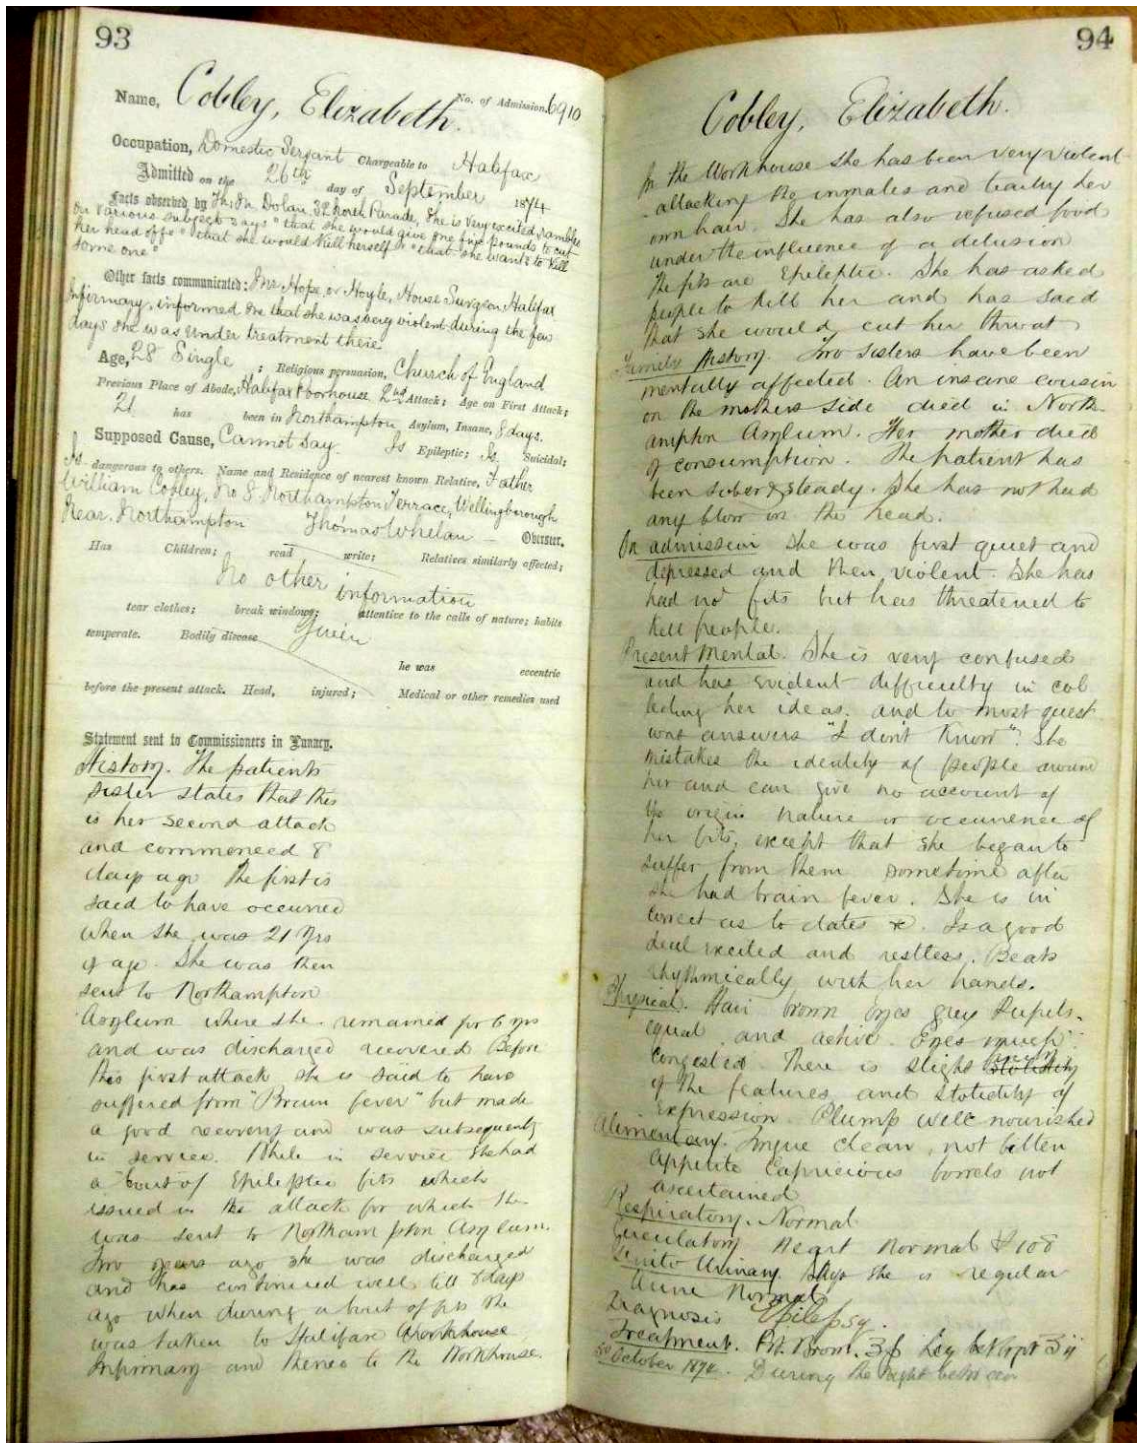 93
Name, Cobley, Elizabeth. No. of Admission, 6910
Occupation, Domestic Servant Chargeable to Halifax
Admitted on the 26th day of September 1874
Facts observed by Th. In. Dolan, 32 North Parade, She is very excited, rambles
on various subjects says "that she would give one five pounds to cut
her head off" "that she would kill herself" "that she wants to kill
some one"
Other facts communicated: Mr Hope, or Hoyle, House Surgeon Halifax
Infirmary, informed me that she was very violent during the few
days she was under treatment there
Age, 28 Single ; Religious persuasion, Church of England
Previous Place of Abode, Halifax Poorhouse 2nd Attack; Age on First Attack;
21 has been in Northampton Asylum, Insane, 8 days.
Supposed Cause, Cannot say. Is Epileptic; Is Suicidal;
Is dangerous to others. Name and Residence of nearest known Relative, Father
William Cobley, No 8 Northampton Terrace, Wellingborough
Near Northampton Thomas Whelan Overseer.
Has Children; read write; Relatives similarly affected;
No other information
tear clothes; break windows; attentive to the calls of nature; habits
temperate. Bodily disease Given
he was eccentric
before the present attack. Head, injured; Medical or other remedies used
Statement sent to Commissioners in Lunacy.
History. The patients
sister states that this
is her second attack
and commenced 8
days ago the first is
said to have occurred
when she was 21 yrs
of age. She was then
sent to Northampton
Asylum where she remained for 6 yrs
and was discharged recovered Before
this first attack she is said to have
suffered from "Brain fever" but made
a good recovery and was subsequently
in service. While in service she had
a bout of Epileptic fits which
issued in the attack for which she
was sent to Northampton Asylum.
Two years ago she was discharged
and has continued well till 8 days
ago when during a bout of fits she
was taken to Halifax Workhouse
Infirmary and thence to the Workhouse.
94
Cobley, Elizabeth.
In the Workhouse she has been very violent
attacking the inmates and tearing her
own hair. She has also refused food
under the influence of a delusion
The fits are Epileptic. She has asked
people to kill her and has said
that she would cut her throat
Family History. Two sisters have been
mentally affected. An insane cousin
on the mothers side died in North-
ampton Asylum. Her mother died
of consumption. The patient has
been sober & steady. She has not had
any blow on the head.
On admission she was first quiet and
depressed and then violent. She has
had no fits but has threatened to
kill people.
Present Mental. She is very confused
and has evident difficulty in col
lecting her ideas. and to most quest
ions answers "I don't know". She
mistakes the identity of people around
her and can give no account of
the origin nature or occurrence of
her fits, except that she began to
suffer from them sometime after
she had brain fever. She is in
correct as to dates &c. Is a good
deal excited and restless. Beats
rhythmically with her hands.
Physical. Hair brown Eyes grey Pupils
equal and active. Eyes much
congested There is slight stolidity
of the features and stolidity of
expression. Plump well nourished
Alimentary. Tongue clean, not bitten
appetite Capricious bowels not
ascertained
Respiratory. Normal
Circulatory Heart normal P 108
Genito Urinary. Says she is regular
Urine Normal
Diagnosis Epilepsy.
Treatment. Pot. Brom.
October 1874. During the night